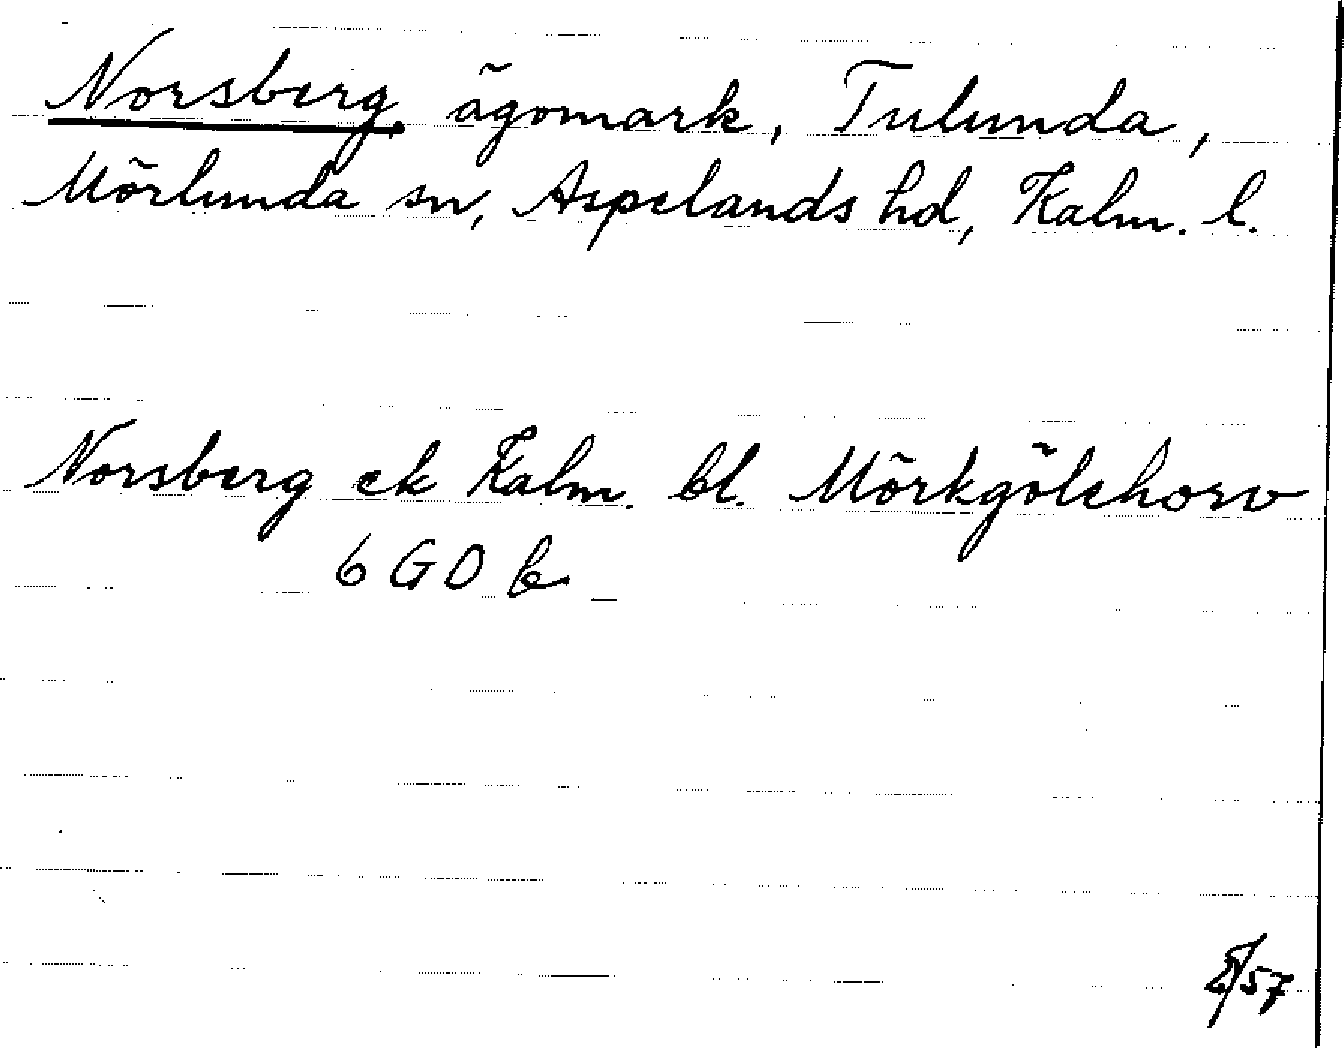 Norsberg, ägomark, Tulunda,
Mörlunda sn, Aspelands hd, Kalm. l.
Norsberg ek Kalm. bl. Mörkgölehorv
6 G O b
/57